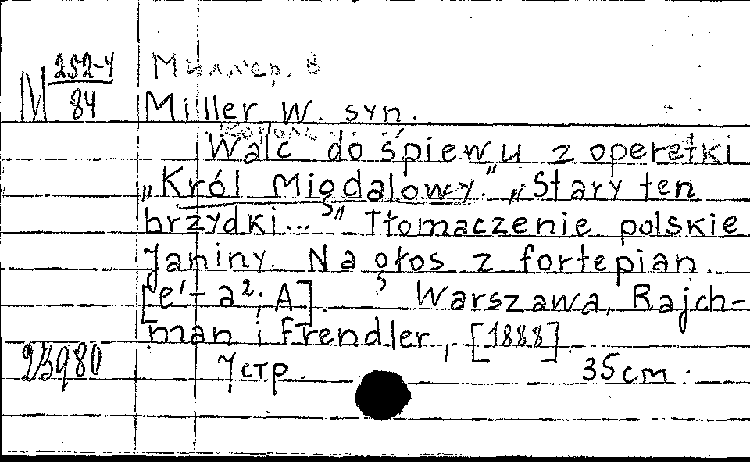 М 252-4
84
Миллер. В
Miller W. syn.
Walc do śpiewu z operetki
„Król Migdałowy." „Stary ten
brzydki..." Tłomaczenie polskie
Janiny. Na głos z fortepian.
[e¹-a²; A]. Warszawa, Rajch-
man i Frendler, [1888].
23980
7 стр. 35 cm.